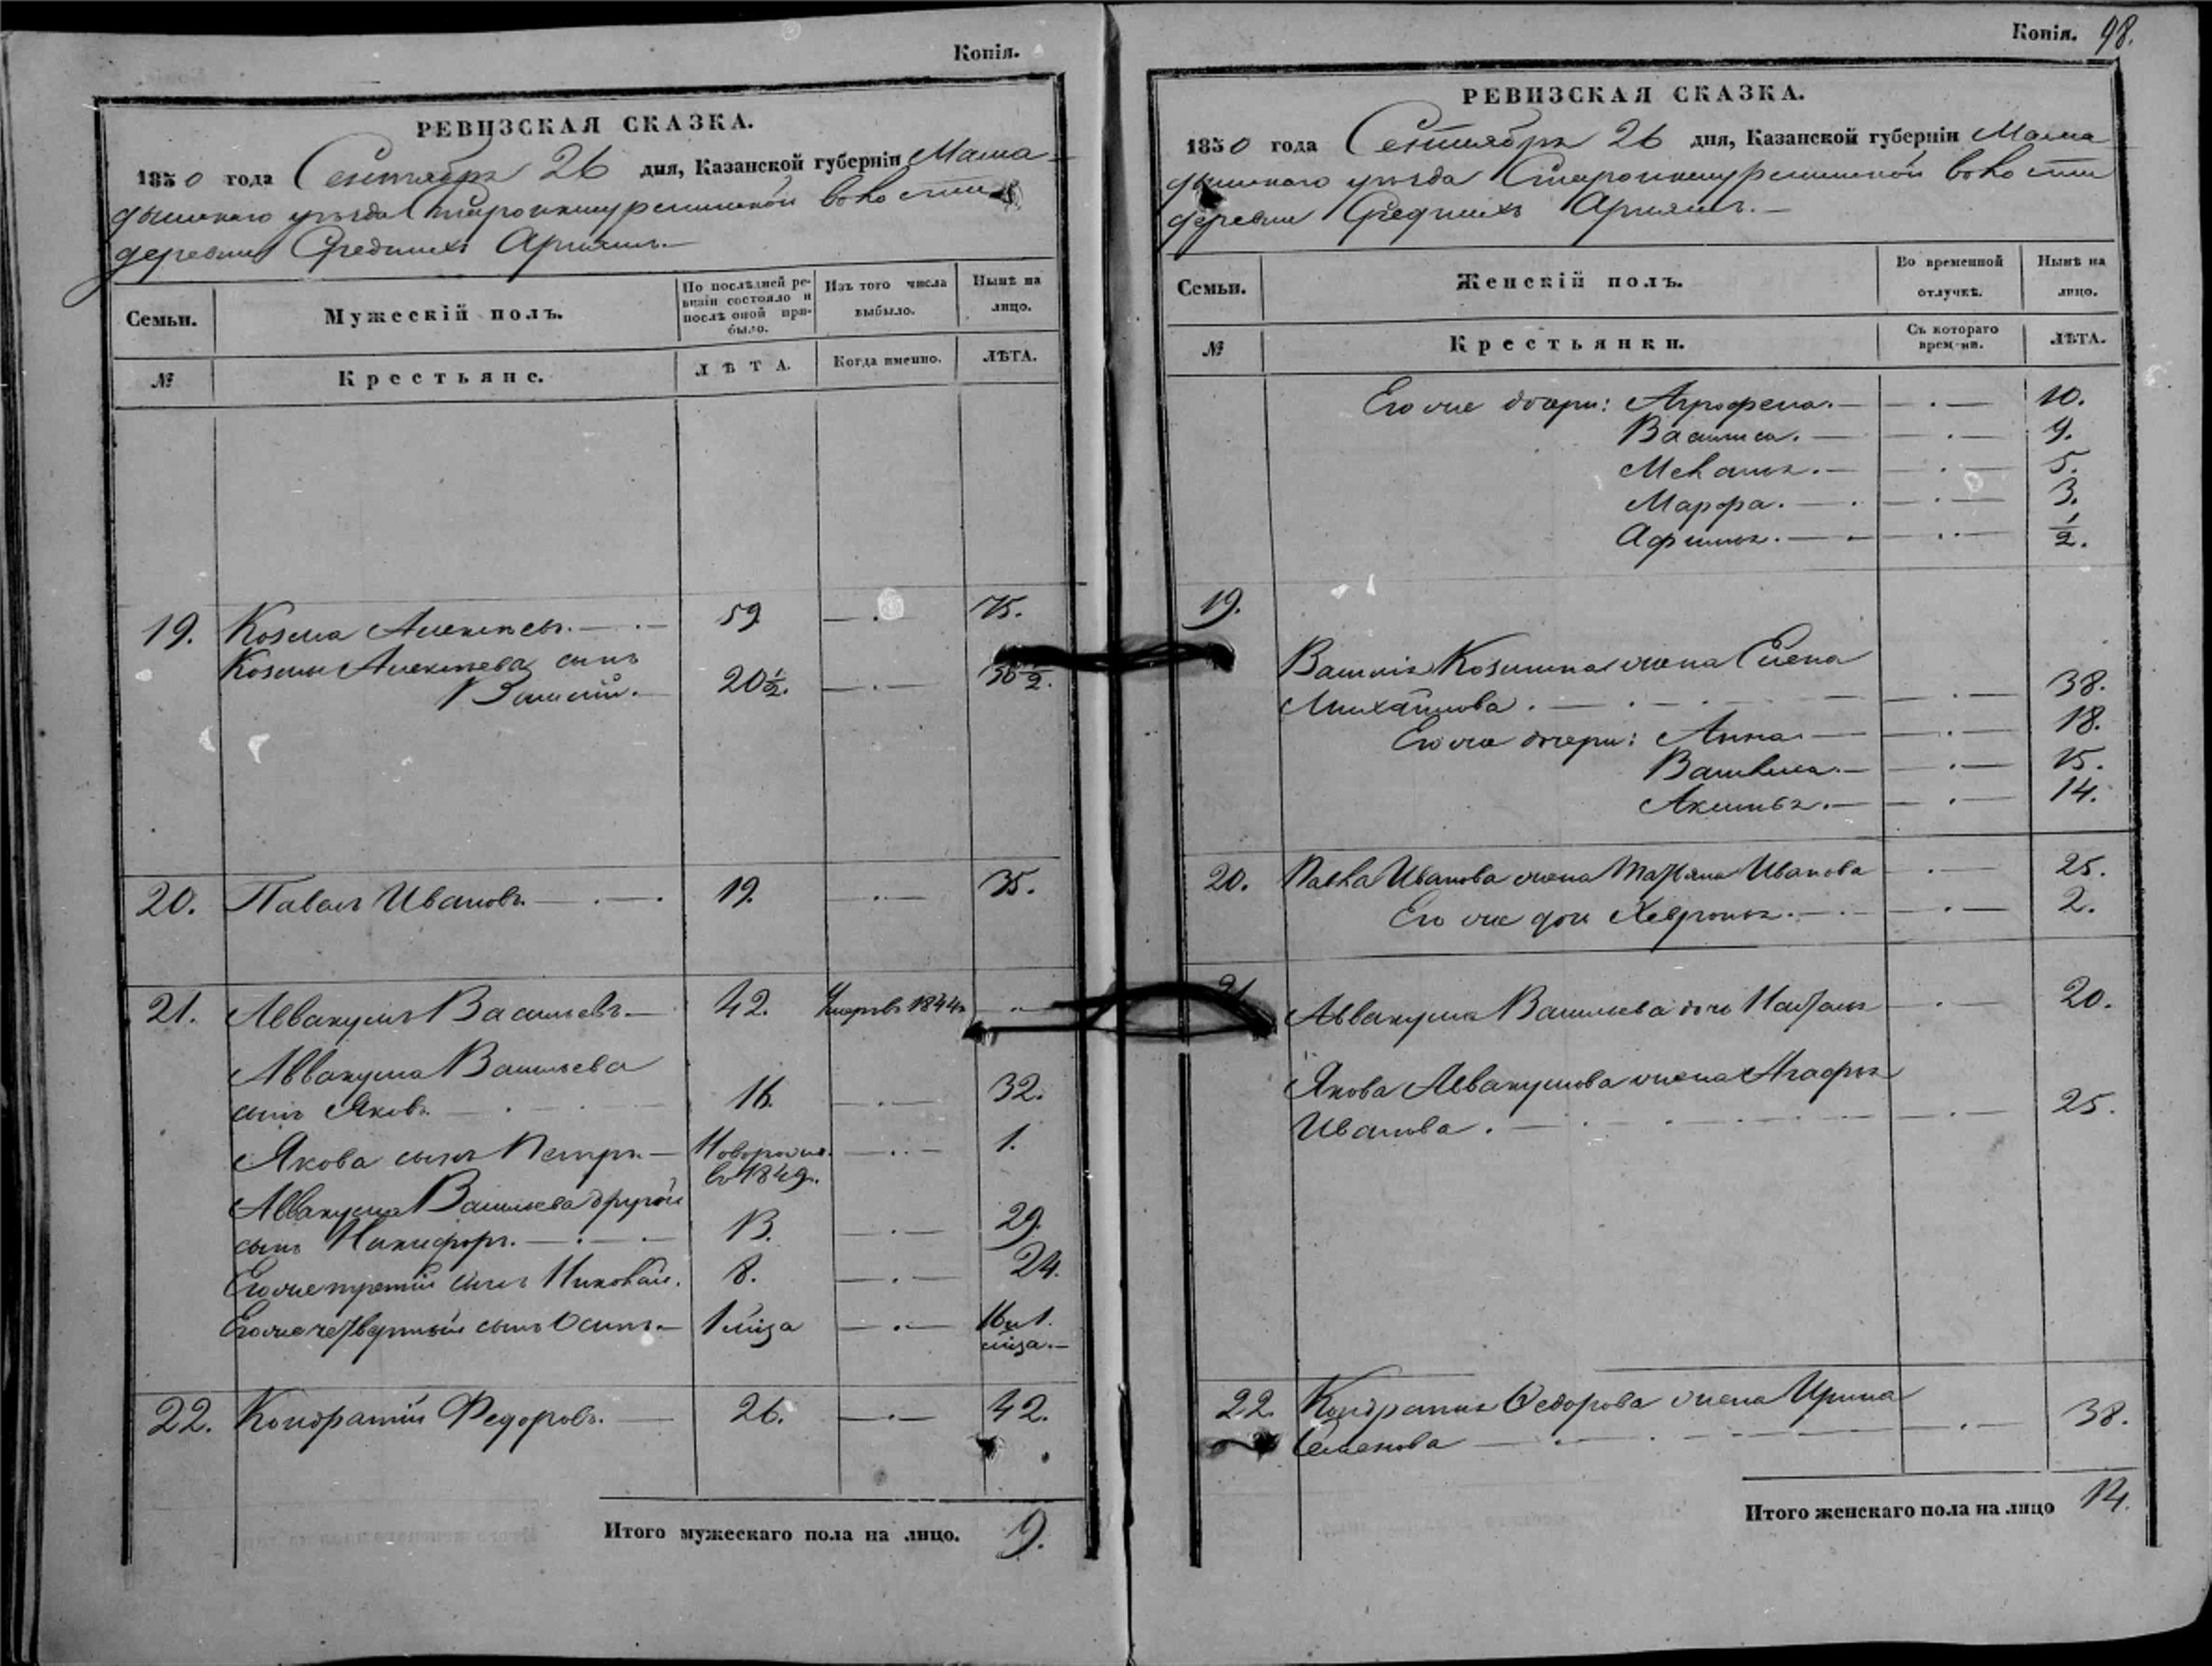 Копія.
РЕВИЗСКАЯ СКАЗКА.
1850 года Сентября 26 дня, Казанской губерніи Мама-
дышскаго уѣзда волости
деревни Среднихъ Арняшъ.—
Семьи.
Мужескій полъ.
По послѣдней ре-
визіи состояло и
послѣ оной при-
было.
Изъ того числа
выбыло.
Нынѣ на
лицо.
№
Крестьяне.
ЛѢТА.
Когда именно.
ЛѢТА.
19. Козма Алексѣевъ.— 59. —.— 75.
Козмы Алексѣева сынъ
Василій.— 20½. —.— 36½.
20. Павелъ Ивановъ.— 19. —.— 35.
21. Аввакумъ Васильевъ.— 42. Умеръ въ 1844
Аввакума Васильева
сынъ Яковъ.— 16. —.— 32.
Якова сынъ Петръ.— Новорожд. —.— 1.
въ 1849.
Аввакума Васильева другой
сынъ Никифоръ.— 13. —.— 29.
Его же третій сынъ Николай. 8. —.— 24.
Его же четвертый сынъ Осипъ.— 1 мѣца —.— 16 и 1.
мѣца.—
22. Кондратій Федоровъ.— 26. —.— 42.
Итого мужескаго пола на лицо. 9.
Копія. 98.
РЕВИЗСКАЯ СКАЗКА.
1850 года Сентября 26 дня, Казанской губерніи Мама
дышскаго уѣзда волости
деревни Среднихъ Арняшъ.—
Семьи.
Женскій полъ.
Во временной
отлучкѣ.
Нынѣ на
лицо.
№
Крестьянки.
Съ котораго
времени.
ЛѢТА.
Его же дочери: Агрофена.— —.— 10.
Васильса.— —.— 9.
Меланья.— —.— 5.
Марфа.— —.— 3.
Афимья.— —.— ½.
19.
Василья Козмина жена Елена
Михайлова.— —.— 38.
Его же дочери: Анна.— —.— 18.
—.— 15.
Акилина.— —.— 14.
20. Павла Иванова жена Татьяна Иванова —.— 25.
Его же дочь Хевронья.— —.— 2.
21. Аввакума Васильева дочь Наталья —.— 20.
Якова Аввакумова жена Агафья
Иванова.— —.— 25.
22. Кондратья Ѳедорова жена Ирина
Семенова —.— 38.
Итого женскаго пола на лицо 14.